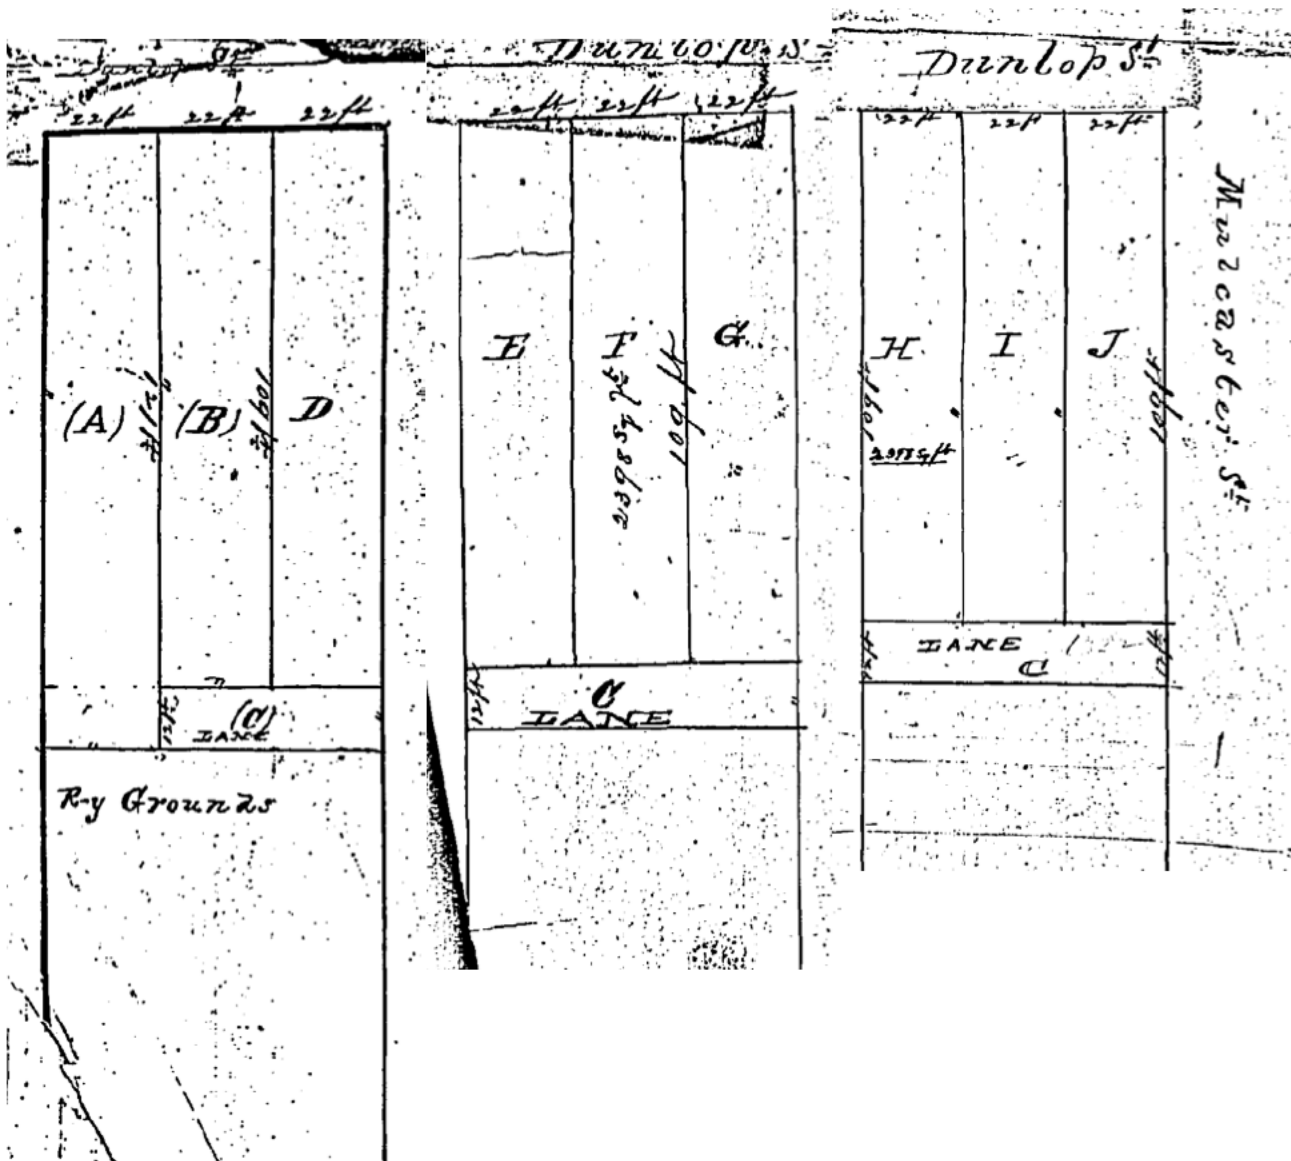 Dunlop St
22 ft 22 ft 22 ft
(A)
121 ft
(B)
109 ft
D
12 ft
(C)
LANE
R-y Grounds
Dunlop St
22 ft 22 ft 22 ft
E
F
2398 sq ft
109 ft
G
12 ft
C
LANE
Dunlop St
22 ft 22 ft 22 ft
H
I
J
109 ft
2398 sq ft
109 ft
12 ft
LANE
C
12 ft
Mulcaster St